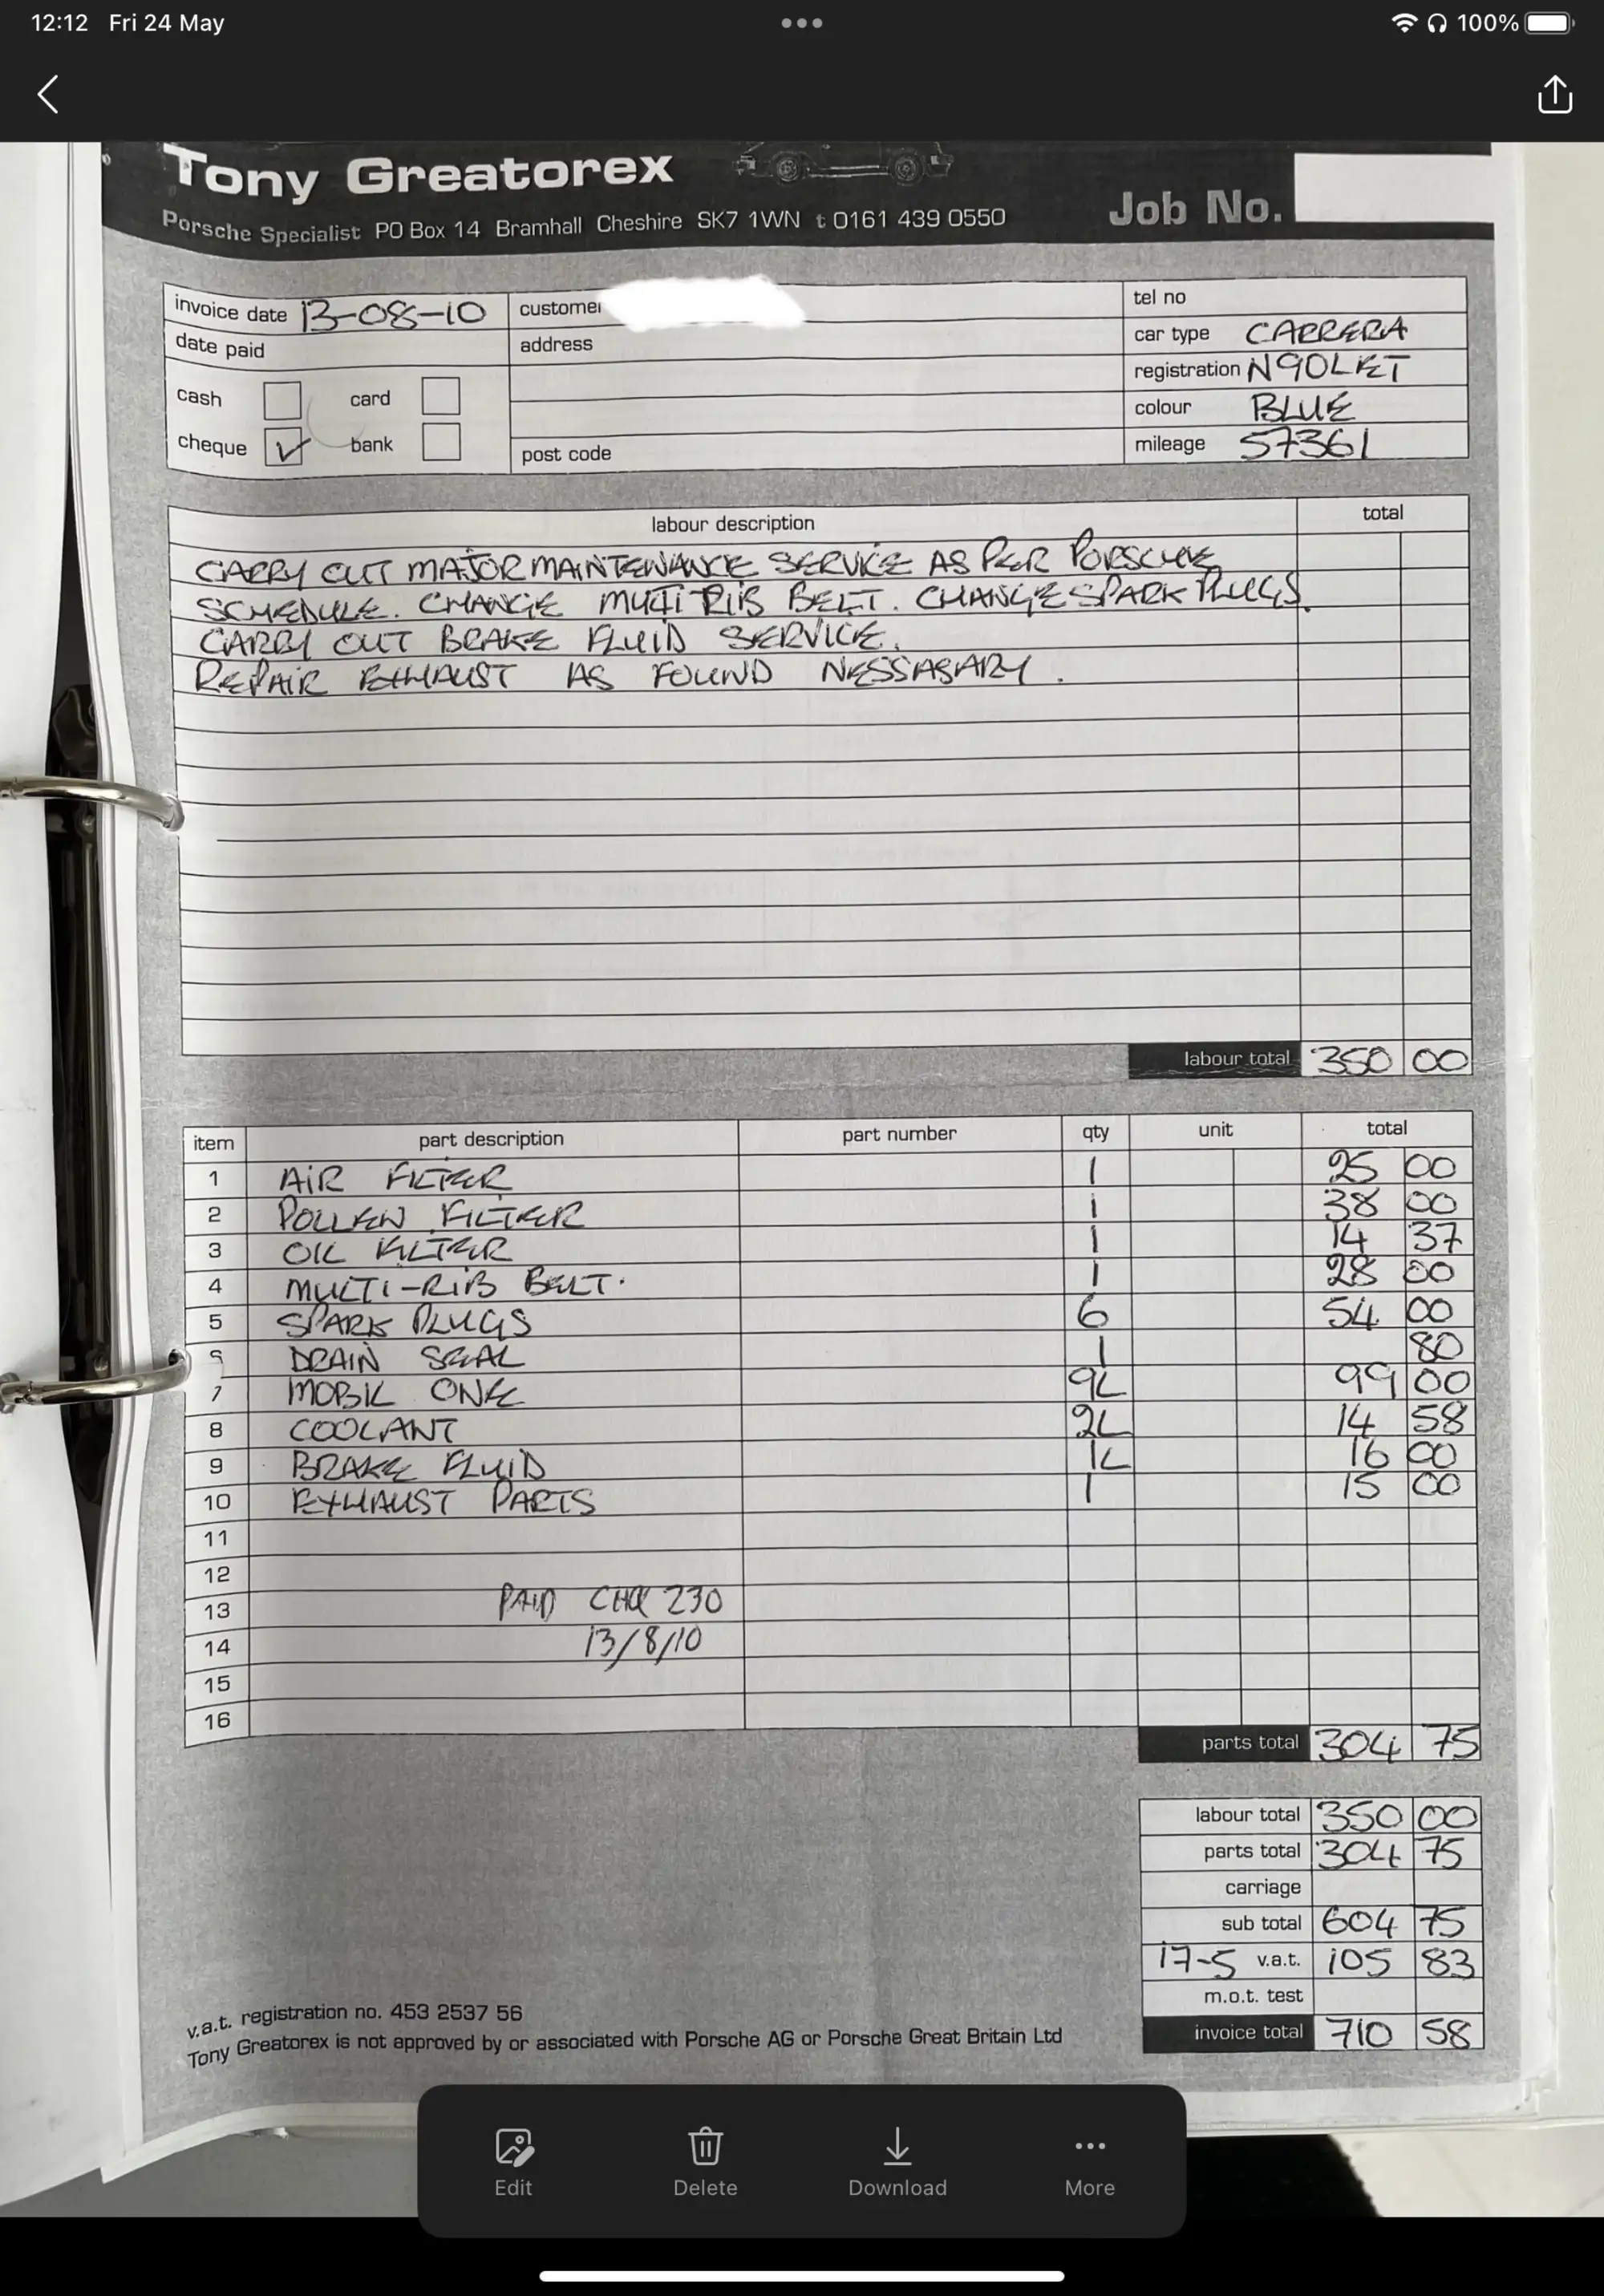 12:12 Fri 24 May 100%
Tony Greatorex
Porsche Specialist PO Box 14 Bramhall Cheshire SK7 1WN t 0161 439 0550
Job No.
invoice date 13-08-10
date paid
cash card
cheque ✓ bank
customer
address
post code
tel no
car type CARRERA
registration N90LKT
colour BLUE
mileage 57361
labour description total
CARRY OUT MAJOR MAINTENANCE SERVICE AS PER PORSCHE
SCHEDULE. CHANGE MULTI RIB BELT. CHANGE SPARK PLUGS.
CARRY OUT BRAKE FLUID SERVICE.
REPAIR EXHAUST AS FOUND NESSASARY.
labour total 350 00
item part description part number qty unit total
1 AIR FILTER 1 25 00
2 POLLEN FILTER 1 38 00
3 OIL FILTER 1 14 37
4 MULTI-RIB BELT. 1 28 00
5 SPARK PLUGS 6 54 00
6 DRAIN SEAL 1 80
7 MOBIL ONE 9L 99 00
8 COOLANT 2L 14 58
9 BRAKE FLUID 1L 16 00
10 EXHAUST PARTS 1 15 00
11
12
13 PAID CHQ 230
14 13/8/10
15
16
parts total 304 75
labour total 350 00
parts total 304 75
carriage
sub total 604 75
17-5 v.a.t. 105 83
m.o.t. test
invoice total 710 58
v.a.t. registration no. 453 2537 56
Tony Greatorex is not approved by or associated with Porsche AG or Porsche Great Britain Ltd
Edit Delete Download More